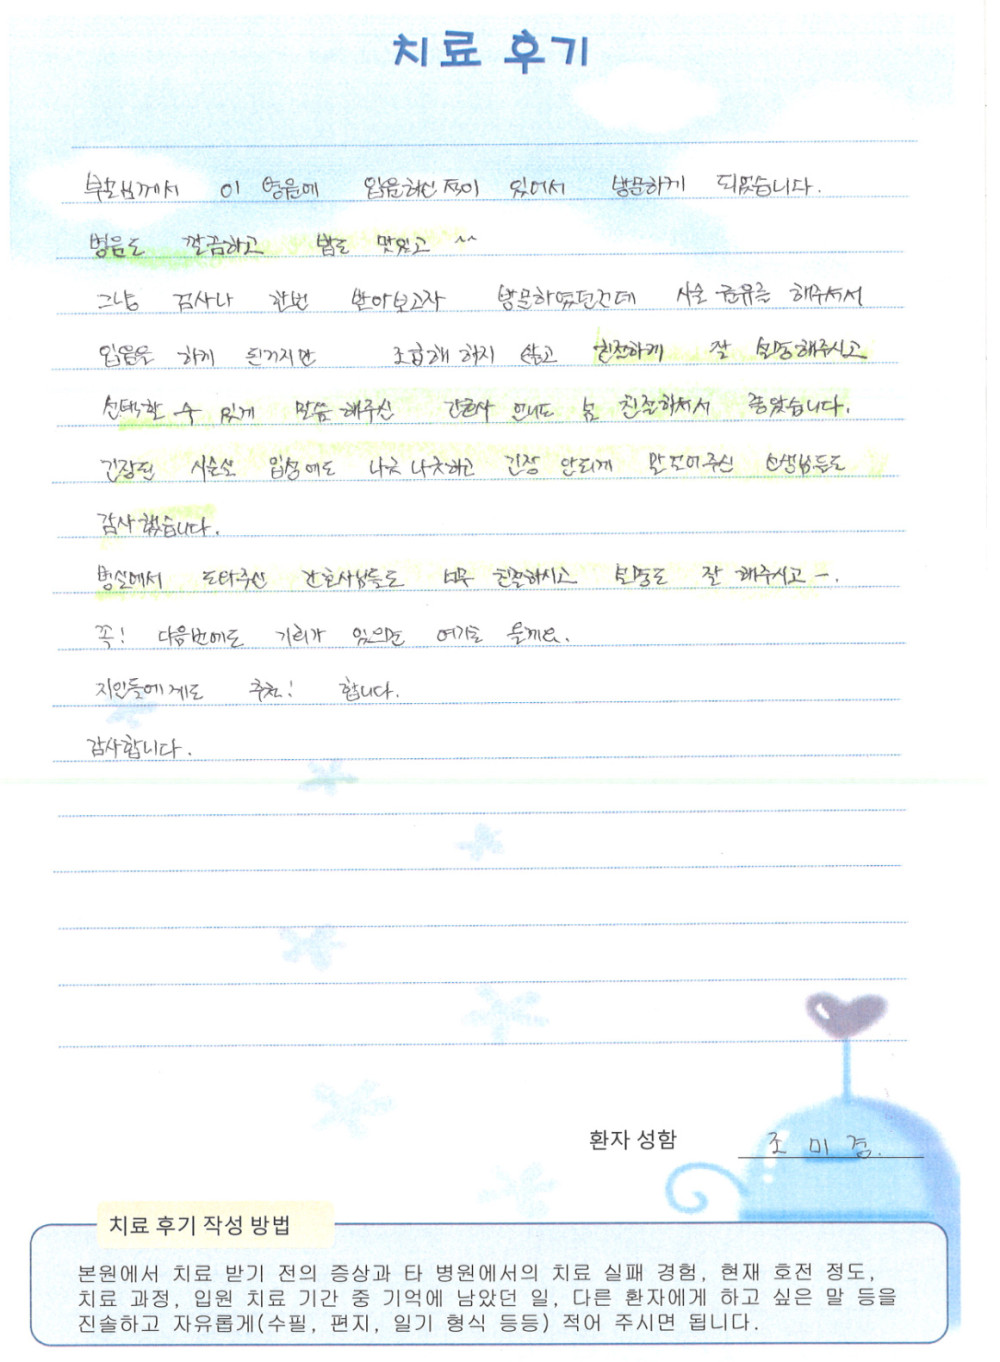 치료 후기
부모님께서 이 병원에 입원하신 적이 있어서 방문하게 되었습니다.
병원도 깔끔하고 밥도 맛있고 ^^
그냥 검사나 한번 받아보고자 방문하였던건데 시술 권유를 해주셔서
입원을 하게 된거지만 조급해 하지 않고 친절하게 잘 설명해주시고
선택할 수 있게 말씀 해주신 간호사 언니도 넘 친절하셔서 좋았습니다.
긴장된 시술실 입성에도 나긋 나긋하고 긴장 안되게 만들어주신 선생님들도
감사했습니다.
병실에서 도와주신 간호사님들도 너무 친절하시고 설명도 잘 해주시고 ~.
꼭! 다음번에도 기회가 있으면 여기로 올께요.
지인들에게도 추천! 합니다.
감사합니다.
환자 성함 조 미 경.
치료 후기 작성 방법
본원에서 치료 받기 전의 증상과 타 병원에서의 치료 실패 경험, 현재 호전 정도,
치료 과정, 입원 치료 기간 중 기억에 남았던 일, 다른 환자에게 하고 싶은 말 등을
진솔하고 자유롭게(수필, 편지, 일기 형식 등등) 적어 주시면 됩니다.